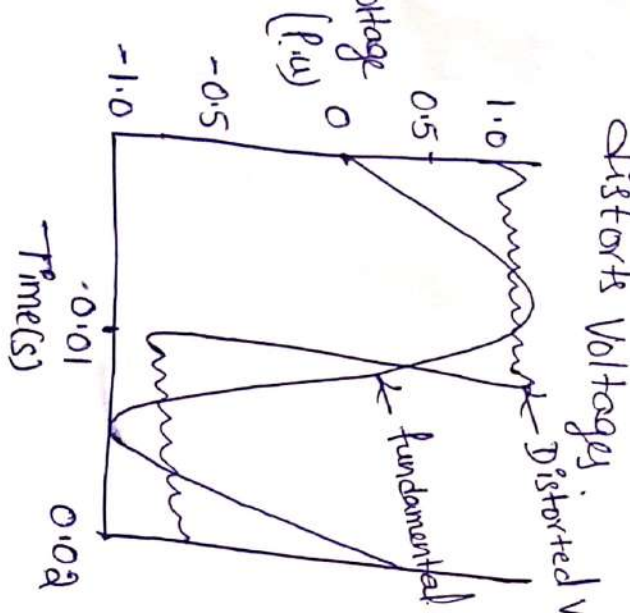 distorts Voltages
Distorted V
fundamental
1.0
0.5
0
-0.5
-1.0
(P.u)
0.01
0.02
Time(s)